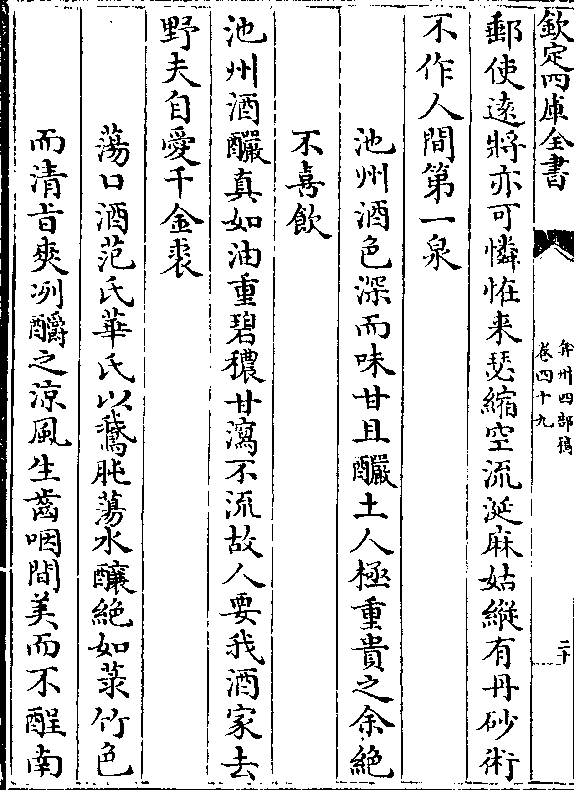 欽定四庫全書
弇州四部稿
卷四十九
二十
郵使逺將亦可憐恠来瑟縮空流涎麻姑縱有丹砂術
不作人間第一泉
池州酒色深而味甘且釅土人極重貴之余絶
不喜飲
池州酒釅真如油重碧穠甘瀉不流故人要我酒家去
野夫自愛千金裘
蕩口酒范氏華氏以鵞肫蕩水釀絶如菉竹色
而清旨爽冽釂之凉風生齒咽間美而不酲南